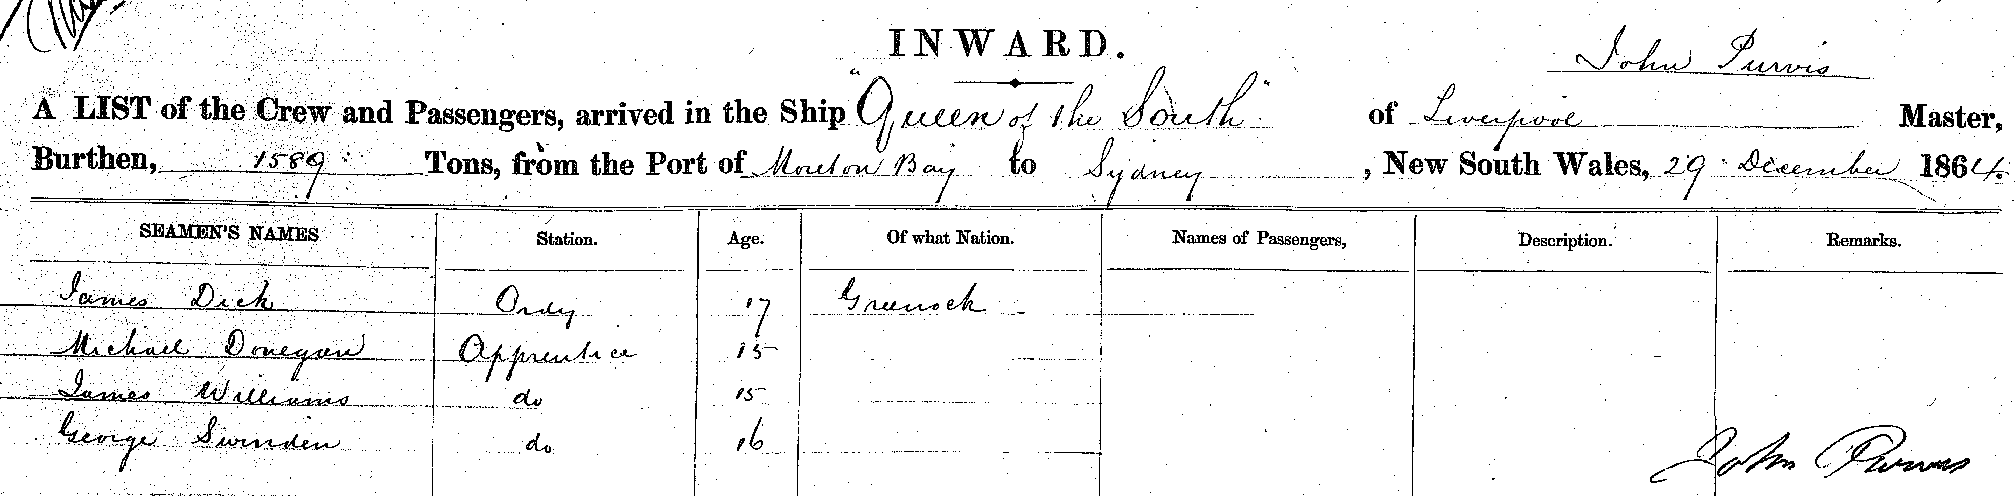 INWARD.
John Purvis
A LIST of the Crew and Passengers, arrived in the Ship "Queen of the South" of Liverpool Master,
Burthen, 1589 Tons, from the Port of Moreton Bay to Sydney, New South Wales, 29 December 1864
SEAMEN'S NAMES Station. Age. Of what Nation. Names of Passengers, Description. Remarks.
James Dick Ordy 17 Greenock
Michael Donegan Apprentice 15
James Williams do 15
George Swinden do 16
John Purvis